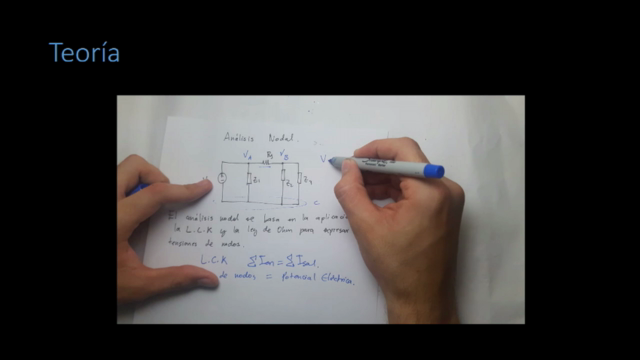 Teoría
Análisis Nodal
VA R3 VB V
Z1 Z2 Z4
C
El análisis nodal se basa en la aplicación
la L.C.K y la ley de Ohm para expresar
tensiones de nodos.
L.C.K ΣIen = ΣIsal.
de nodos = Potencial Eléctrico.